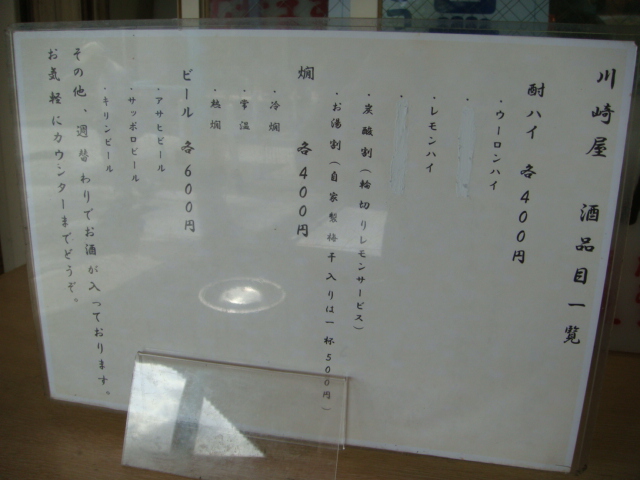 川崎屋 酒品目一覧
酎ハイ 各400円
・ウーロンハイ
・
・レモンハイ
・
・炭酸割(輪切りレモンサービス)
・お湯割(自家製梅干入りは一杯500円)
燗 各400円
・冷燗
・常温
・熱燗
ビール 各600円
・アサヒビール
・サッポロビール
・キリンビール
その他、週替わりでお酒が入っております。
お気軽にカウンターまでどうぞ。